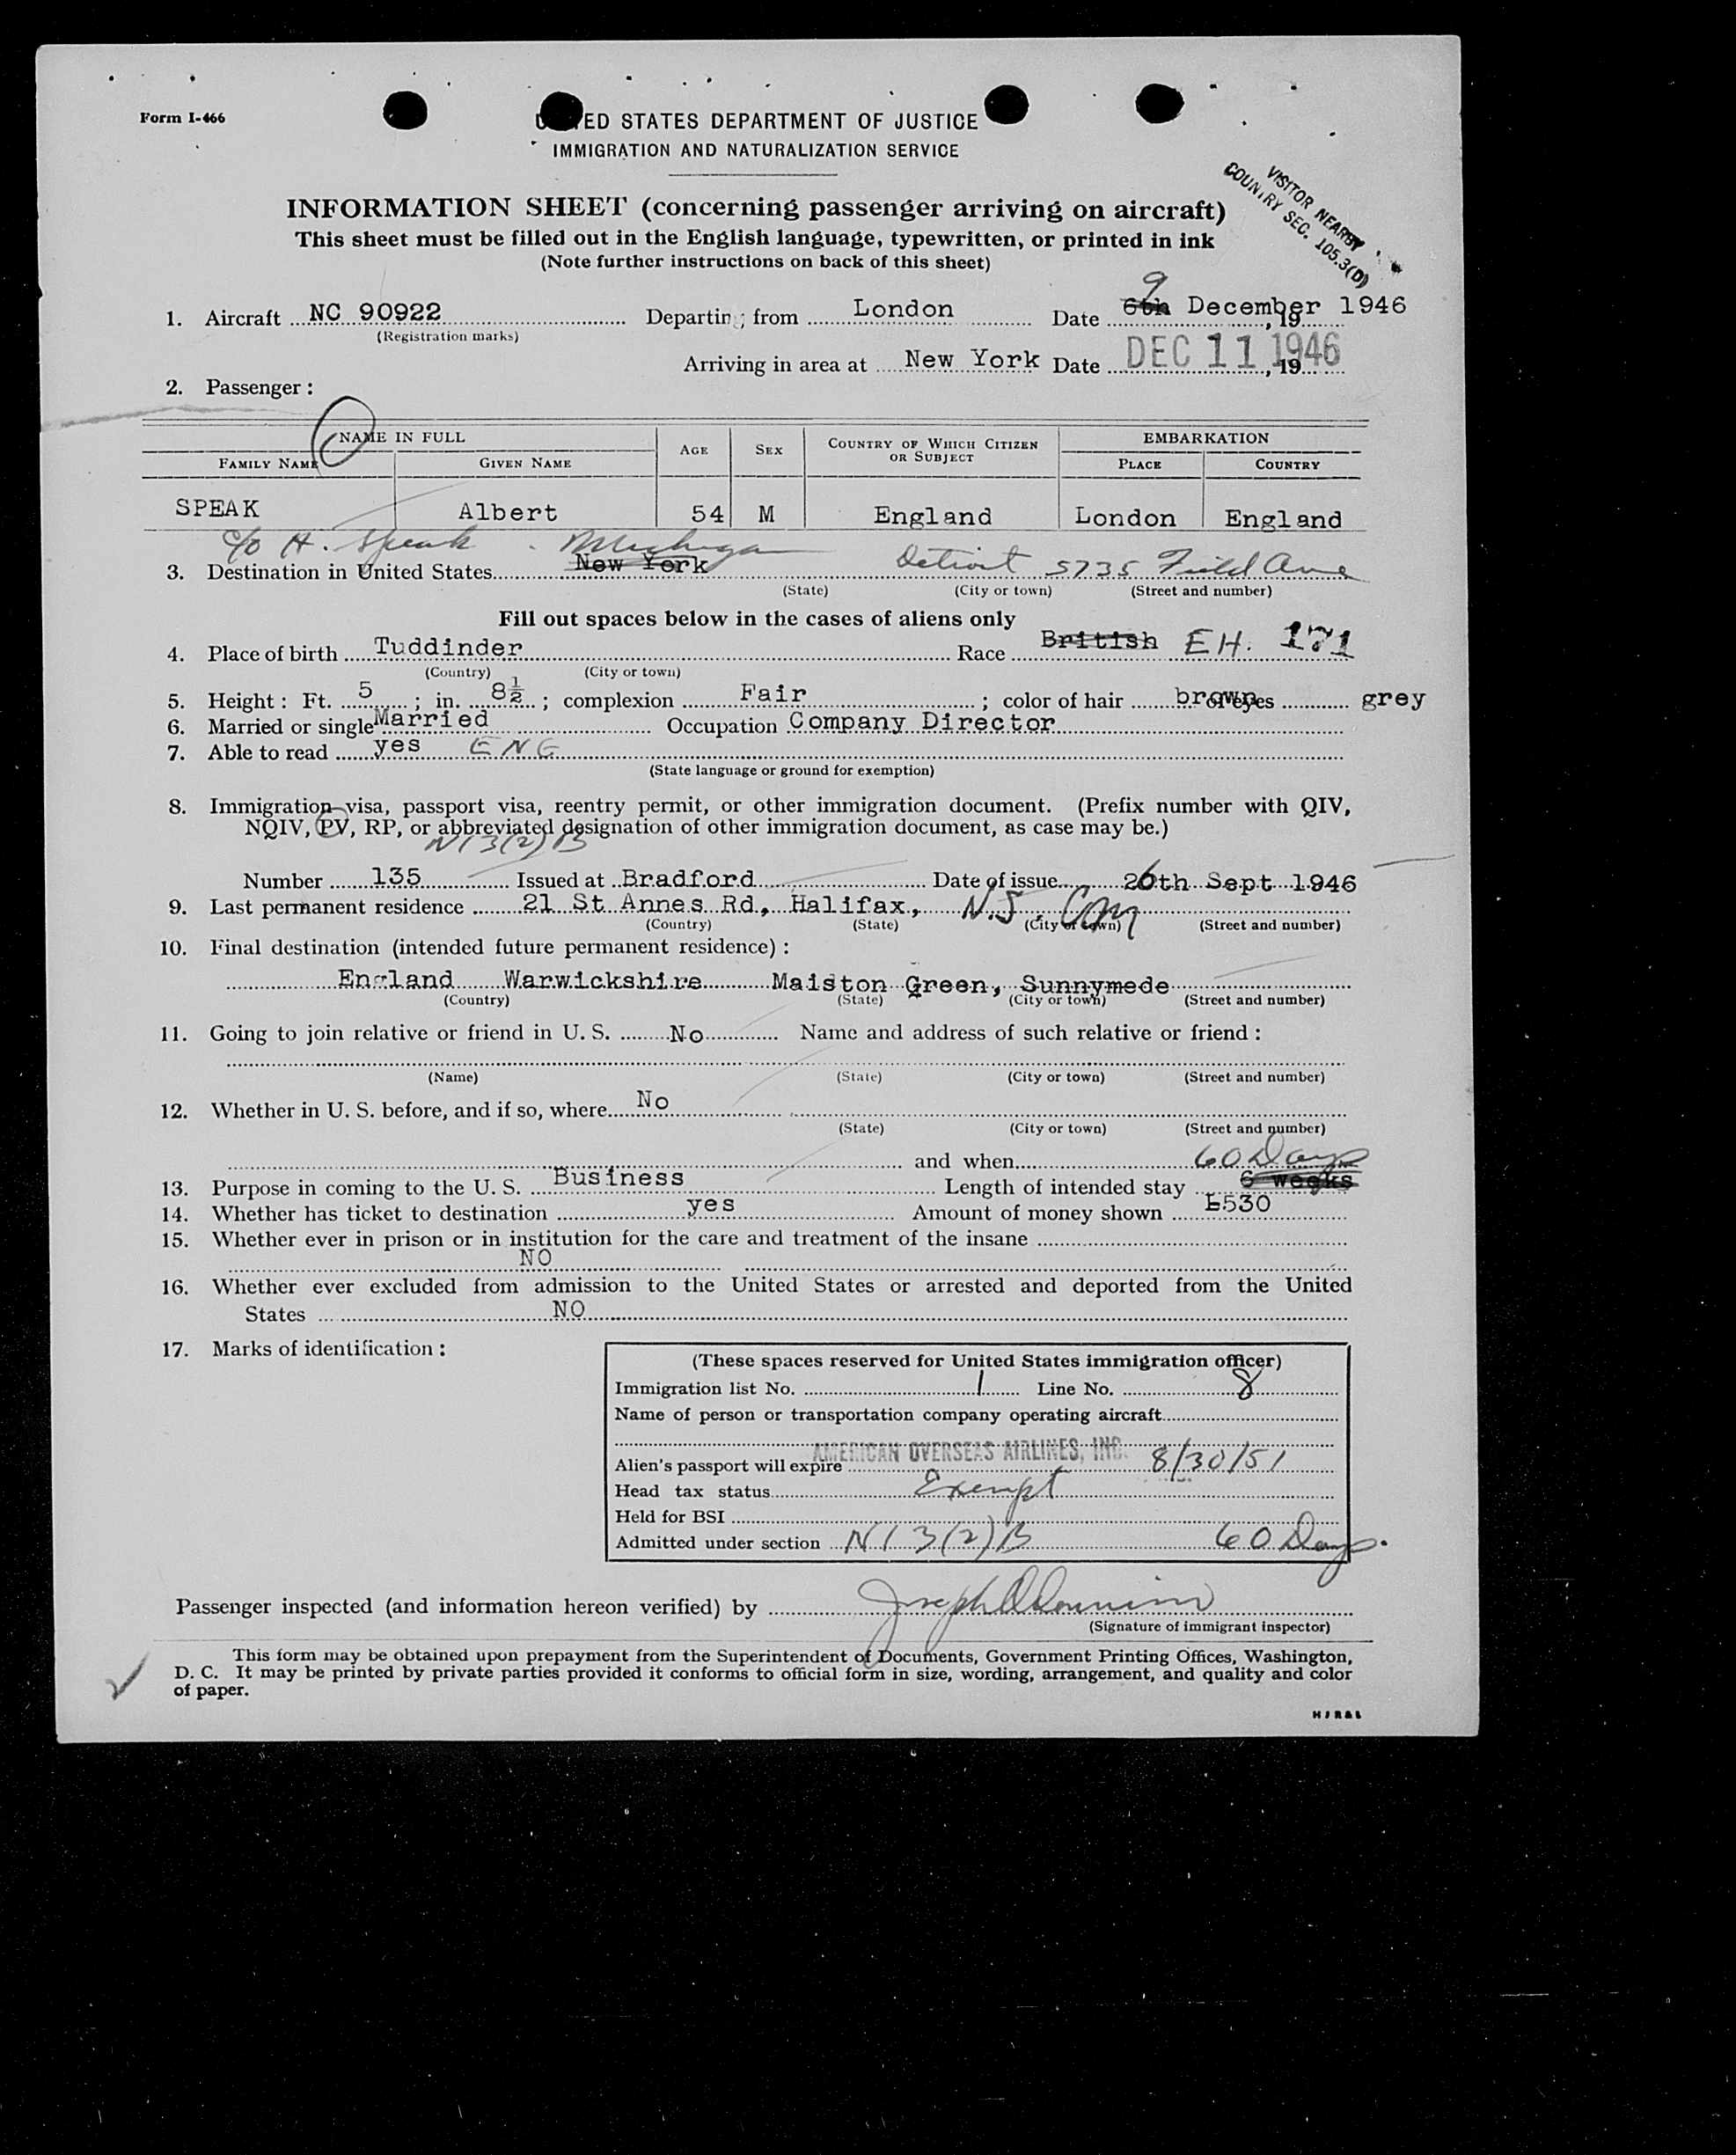 Form I-466
UNITED STATES DEPARTMENT OF JUSTICE
IMMIGRATION AND NATURALIZATION SERVICE
VISITOR NEARBY
COUNTRY SEC. 105.3(D)
INFORMATION SHEET (concerning passenger arriving on aircraft)
This sheet must be filled out in the English language, typewritten, or printed in ink
(Note further instructions on back of this sheet)
9
1. Aircraft NC 90922 Departing from London Date 6th December 1946, 19
(Registration marks)
Arriving in area at New York Date DEC 11 1946, 19
2. Passenger:
NAME IN FULL AGE SEX COUNTRY OF WHICH CITIZEN OR SUBJECT EMBARKATION
FAMILY NAME GIVEN NAME PLACE COUNTRY
SPEAK Albert 54 M England London England
c/o H. Speak Michigan
3. Destination in United States New York Detroit 5735 Field Ave
(State) (City or town) (Street and number)
Fill out spaces below in the cases of aliens only
4. Place of birth Tuddinder Race British EH. 171
(Country) (City or town)
5. Height: Ft. 5; in. 8½; complexion Fair; color of hair brown eyes grey
6. Married or single Married Occupation Company Director
7. Able to read yes ENG
(State language or ground for exemption)
8. Immigration visa, passport visa, reentry permit, or other immigration document. (Prefix number with QIV,
NQIV, PV, RP, or abbreviated designation of other immigration document, as case may be.)
N/3(2)B
Number 135 Issued at Bradford Date of issue 26th Sept 1946
9. Last permanent residence 21 St Annes Rd, Halifax,
(Country) (State) (City or town) (Street and number)
10. Final destination (intended future permanent residence):
England Warwickshire Maiston Green, Sunnymede
(Country) (State) (City or town) (Street and number)
11. Going to join relative or friend in U. S. No Name and address of such relative or friend:
(Name) (State) (City or town) (Street and number)
12. Whether in U. S. before, and if so, where No
(State) (City or town) (Street and number)
and when 60 Days
13. Purpose in coming to the U. S. Business Length of intended stay 6 weeks
14. Whether has ticket to destination yes Amount of money shown £530
15. Whether ever in prison or in institution for the care and treatment of the insane
NO
16. Whether ever excluded from admission to the United States or arrested and deported from the United
States NO
17. Marks of identification:
(These spaces reserved for United States immigration officer)
Immigration list No. 1 Line No. 8
Name of person or transportation company operating aircraft
AMERICAN OVERSEAS AIRLINES, INC.
Alien's passport will expire 8/30/51
Head tax status Exempt
Held for BSI
Admitted under section N/3(2)B 60 Days.
Passenger inspected (and information hereon verified) by
(Signature of immigrant inspector)
This form may be obtained upon prepayment from the Superintendent of Documents, Government Printing Offices, Washington,
D. C. It may be printed by private parties provided it conforms to official form in size, wording, arrangement, and quality and color
of paper.